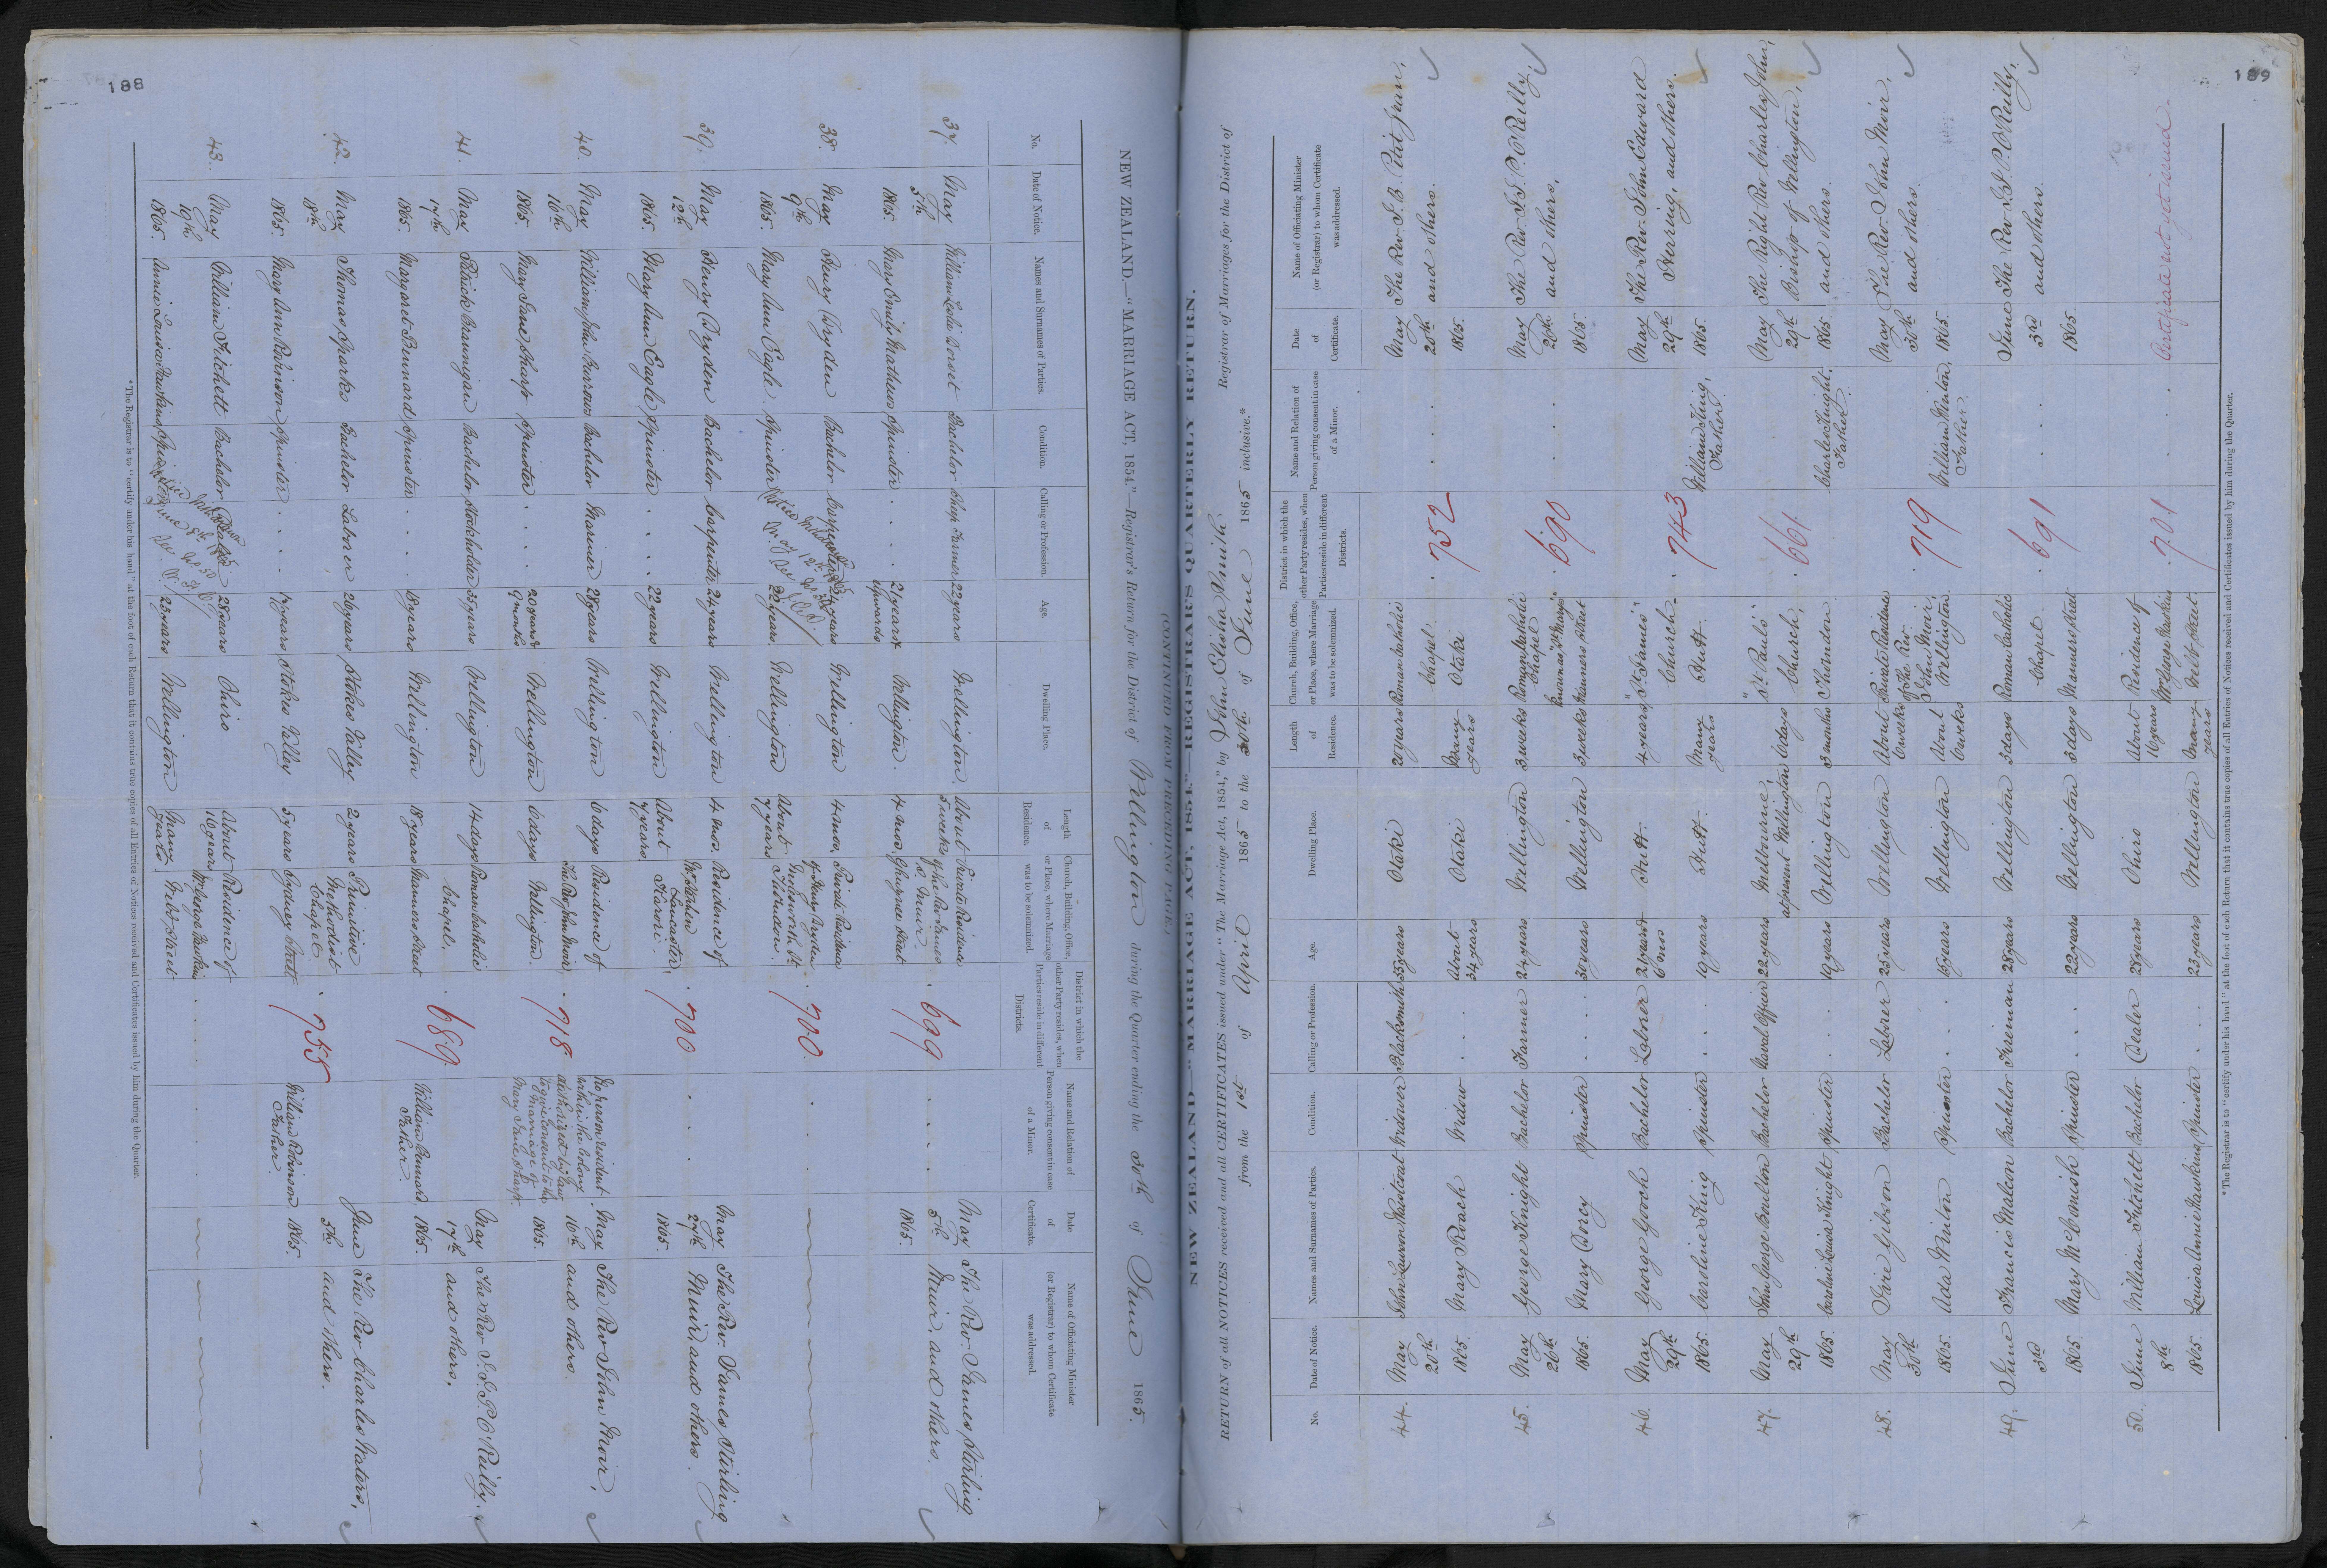 188
NEW ZEALAND.—"MARRIAGE ACT, 1854."—Registrar's Return for the District of Wellington during the Quarter ending the 30th of June 1865.
No.
Date of Notice.
Names and Surnames of Parties.
Condition.
Calling or Profession.
Age.
Dwelling Place.
Length of Residence.
Church, Building, Office, or Place, where Marriage was to be solemnized.
District in which the other Party resides, when Parties reside in different Districts.
Name and Relation of Person giving consent in case of a Minor.
Date of Certificate.
Name of Officiating Minister (or Registrar) to whom Certificate was addressed.
37. May William Leslie Dorset Bachelor Sheep Farmer 22 years Wellington About 5 weeks Private Residence May The Rev. James Stirling
5th of the Rev James S. Muir 699 5th Muir, and others.
1865. Mary Emily Mathews Spinster 21 years & upwards Wellington 4 mos Ghuznee Street 1865.
38. May Henry Dryden Bachelor 24 years Wellington 4 mos. Private Residence
9th of Henry Dryden 700
1865. Mary Ann Eagle Spinster 22 years Wellington About 7 years Molesworth St Thorndon.
39. May Henry Dryden Bachelor Carpenter 24 years Wellington 4 mos. Residence of May The Rev. James Stirling
12th Mr Stephen Lancaster, 700 27th Muir, and others.
1865. Mary Ann Eagle Spinster 22 years Wellington About 7 years Karori. 1865.
40. May William John Burrows Bachelor Mariner 28 years Wellington 6 days Residence of No person resident within the Colony May The Rev John Moir,
16th The Rev John Moir 718 authorized by law to give Consent to the 16th and others.
1865. Mary Jane Sharp Spinster 20 years 9 months Wellington 6 days Wellington. Marriage of Mary Jane Sharp. 1865.
41. May Patrick Brannigan Bachelor Stockholder 35 years Wellington 14 days Roman Catholic May The Rev. J. J. P. O'Reilly,
17th Chapel, 689. 17th and others,
1865. Margaret Bennard Spinster 18 years Wellington 18 years Manners Street William Bennard Father 1865.
42. May Thomas Sparks Bachelor Laborer 26 years Stokes Valley 2 years Primitive June The Rev Charles Waters,
18th Methodist Chapel 755 5th and others.
1865. Mary Ann Robinson Spinster 17 years Stokes Valley 5 years Sydney Street William Robinson Father 1865.
43. May William Fitchett Bachelor 28 years Ohiro About 16 years Residence of
19th Mr George Hawkins
1865. Annie Louisa Hawkins Spinster 23 years Wellington Many years Webb Street
* The Registrar is to "certify under his hand" at the foot of each Return that it contains true copies of all Entries of Notices received and Certificates issued by him during the Quarter.
(CONTINUED FROM PRECEDING PAGE.)
189
NEW ZEALAND.—"MARRIAGE ACT, 1854."—REGISTRAR'S QUARTERLY RETURN.
RETURN of all NOTICES received and all CERTIFICATES issued under "The Marriage Act, 1854," by John Elisha Smith Registrar of Marriages for the District of
from the 1st of April 1865 to the 30th of June 1865 inclusive.*
No.
Date of Notice.
Names and Surnames of Parties.
Condition.
Calling or Profession.
Age.
Dwelling Place.
Length of Residence.
Church, Building, Office, or Place, where Marriage was to be solemnized.
District in which the other Party resides, when Parties reside in different Districts.
Name and Relation of Person giving consent in case of a Minor.
Date of Certificate.
Name of Officiating Minister (or Registrar) to whom Certificate was addressed.
44. May Widower Blacksmith 35 years Otaki 20 years Roman Catholic May The Rev. J. B. Petitjean,
20th Chapel 752 20th and others.
1865. Mary Roach Widow About 34 years Otaki Many years Otaki 1865.
45. May George Knight Bachelor Farmer 24 years Wellington 3 weeks Roman Catholic Chapel May The Rev. J. J. P. O'Reilly,
26th known as "St Mary's" 690 26th and others,
1865. Mary Dorcy Spinster 30 years Wellington 3 weeks Manners Street 1865.
46. May George Gooch Bachelor Laborer 21 years & 6 mos Hutt 4 years "St James'" May The Rev. John Edward
29th Church 743 William King, Father 29th Herring, and others.
1865. Caroline King Spinster 19 years Hutt Many years Hutt 1865.
47. May John George Boulton Bachelor Naval Officer 22 years Melbourne, at present Wellington 6 days "St Paul's" May The Right Rev. Charles John,
29th Church, 661 Charles Knight, Father 29th Bishop of Wellington,
1865. Caroline Louisa Knight Spinster 19 years Wellington 3 months Thorndon 1865. and others.
48. May Gibson Bachelor Laborer 25 years Wellington About 6 weeks Private Residence May The Rev. John Moir,
30th of The Rev. John Moir, 719 William Minton, Father 30th and others.
1865. Ada Minton Spinster Wellington About 6 weeks Wellington 1865.
49. June Francis Malcon Bachelor Fireman 28 years Wellington 3 days Roman Catholic June The Rev. J. J. P. O'Reilly,
3rd Chapel 691 3rd and others.
1865 Mary McConish Spinster 22 years Wellington 3 days Manners Street 1865.
50. June William Fitchett Bachelor Dealer 28 years Ohiro About 16 years Residence of
8th Mr George Hawkins 701 Certificate not yet issued
1865. Louisa Annie Hawkins Spinster 23 years Wellington Many years Webb Street
* The Registrar is to "certify under his hand" at the foot of each Return that it contains true copies of all Entries of Notices received and Certificates issued by him during the Quarter.